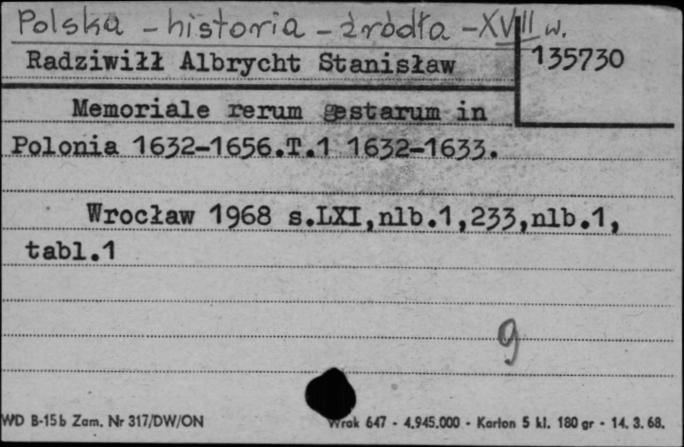 Polska - historia - źródła - XVII w.
Radziwiłł Albrycht Stanisław
135730
Memoriale rerum gestarum in
Polonia 1632-1656.T.1 1632-1633.
Wrocław 1968 s.LXI,nlb.1,233,nlb.1,
tabl.1
9
WD B-15b Zam. Nr 317/DW/ON
Wrak 647 - 4.945.000 - Karton 5 kl. 180 gr - 14. 3. 68.